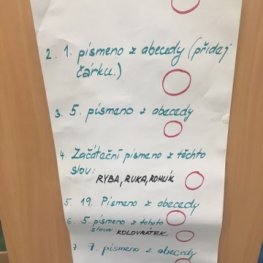 2. 1. písmeno z abecedy (přidej
čárku.)
3. 5. písmeno z abecedy
4. Začáteční písmeno z těchto
slov:
RYBA, RUKA, ROHLÍK
5. 19. Písmeno z abecedy
6. 5 písmeno z tohoto
slova KOLOVRÁTEK
7. 7. písmeno z abecedy